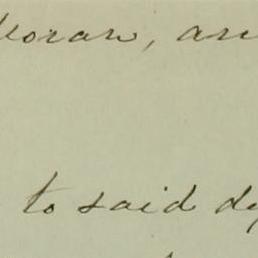 Moran, an
to said de